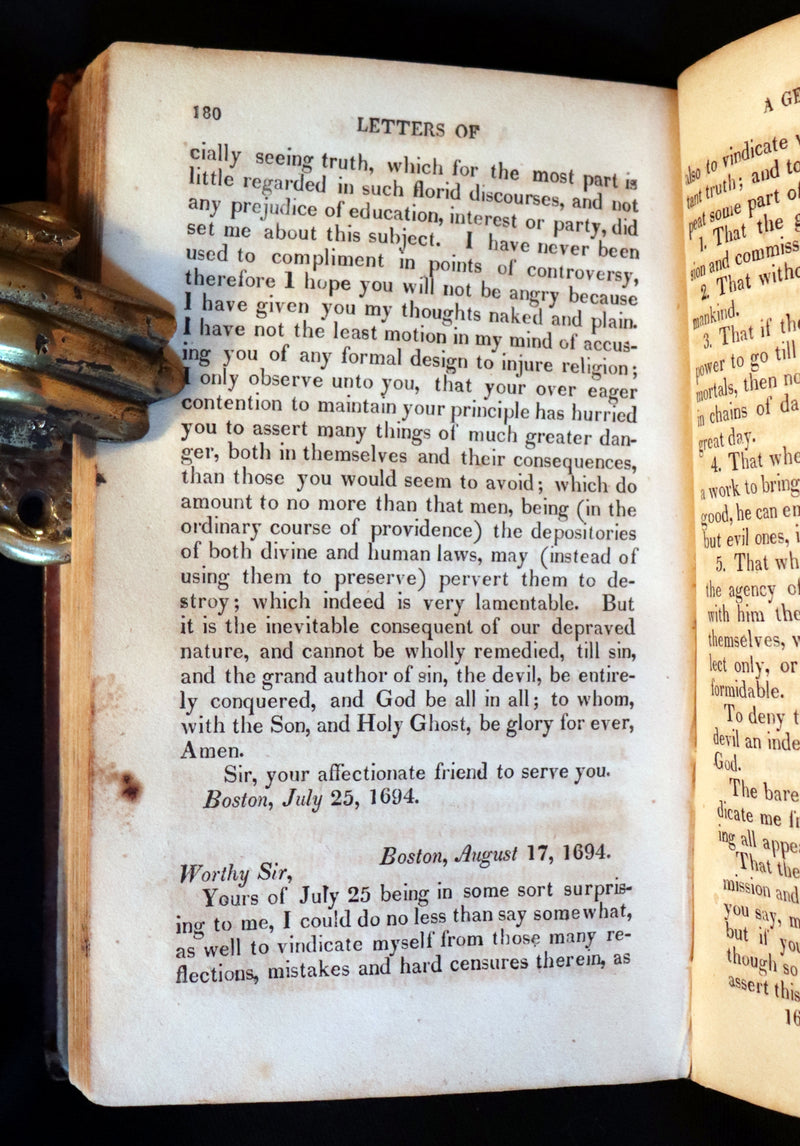 180
LETTERS OF
cially seeing truth, which for the most part is
little regarded in such florid discourses, and not
any prejudice of education, interest or party, did
set me about this subject. I have never been
used to compliment in points of controversy,
therefore I hope you will not be angry because
I have given you my thoughts naked and plain.
I have not the least motion in my mind of accus-
ing you of any formal design to injure religion;
I only observe unto you, that your over eager
contention to maintain your principle has hurried
you to assert many things of much greater dan-
ger, both in themselves and their consequences,
than those you would seem to avoid; which do
amount to no more than that men, being (in the
ordinary course of providence) the depositories
of both divine and human laws, may (instead of
using them to preserve) pervert them to de-
stroy; which indeed is very lamentable. But
it is the inevitable consequent of our depraved
nature, and cannot be wholly remedied, till sin,
and the grand author of sin, the devil, be entire-
ly conquered, and God be all in all; to whom,
with the Son, and Holy Ghost, be glory for ever,
Amen.
Sir, your affectionate friend to serve you.
Boston, July 25, 1694.
Boston, August 17, 1694.
Worthy Sir,
Yours of July 25 being in some sort surpris-
ing to me, I could do no less than say somewhat,
as well to vindicate myself from those many re-
flections, mistakes and hard censures therein, as
A GE
also to vindicate
tant truth; and to
peat some part of
1. That the g
sion and commiss
2. That witho
mankind.
3. That if the
power to go till
mortals, then no
in chains of da
great day.
4. That whe
a work to bring
good, he can en
but evil ones, i
5. That wh
the agency of
with him the
themselves, w
lect only, or
formidable.
To deny t
devil an inde
God.
The bare
dicate me fr
ing all appe
That the
mission and
you say, m
but if you
though so
assert this
16